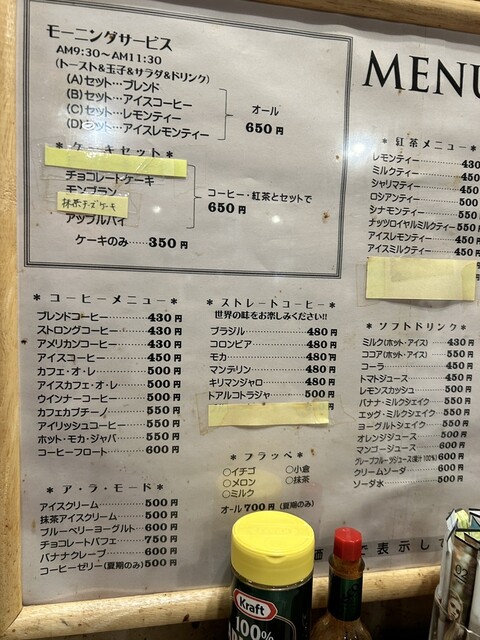 モーニングサービス
AM9:30～AM11:30
(トースト&玉子&サラダ&ドリンク)
(A)セット…ブレンド
(B)セット…アイスコーヒー
(C)セット…レモンティー
(D)セット…アイスレモンティー
オール
650円
＊ケーキセット＊
チョコレートケーキ
モンブラン
抹茶チーズケーキ
アップルパイ
コーヒー・紅茶とセットで
650円
ケーキのみ……350円
＊コーヒーメニュー＊
ブレンドコーヒー……430円
ストロングコーヒー……430円
アメリカンコーヒー……430円
アイスコーヒー……450円
カフェ・オ・レ……500円
アイスカフェ・オ・レ……500円
ウインナーコーヒー……500円
カフェカプチーノ……550円
アイリッシュコーヒー……550円
ホット・モカ・ジャバ……550円
コーヒーフロート……600円
＊ア・ラ・モード＊
アイスクリーム……500円
抹茶アイスクリーム……500円
ブルーベリーヨーグルト…600円
チョコレートパフェ……750円
バナナクレープ……600円
コーヒーゼリー(夏期のみ)500円
＊ストレートコーヒー＊
世界の味をお楽しみください!!
ブラジル……480円
コロンビア……480円
モカ……480円
マンデリン……480円
キリマンジャロ……480円
トアルコトラジャ……500円
＊フラッペ＊
○イチゴ ○小倉
○メロン ○抹茶
○ミルク
オール700円(夏期のみ)
MENU
＊紅茶メニュー＊
レモンティー……430
ミルクティー……450円
シャリマティー……450円
ロシアンティー……500円
シナモンティー……550円
ナッツロイヤルミルクティー…550円
アイスレモンティー……450円
アイスミルクティー……450円
＊ソフトドリンク＊
ミルク(ホット・アイス)…430円
ココア(ホット・アイス)…550円
コーラ……450円
トマトジュース……450円
レモンスカッシュ……500円
バナナ・ミルクシェイク…550円
エッグ・ミルクシェイク…550円
ヨーグルトシェイク……550円
オレンジジュース……500円
マンゴージュース……600円
グレープフルーツジュース(果汁100%)600円
クリームソーダ……600円
ソーダ水……500円
価
で表示して
Kraft
100%